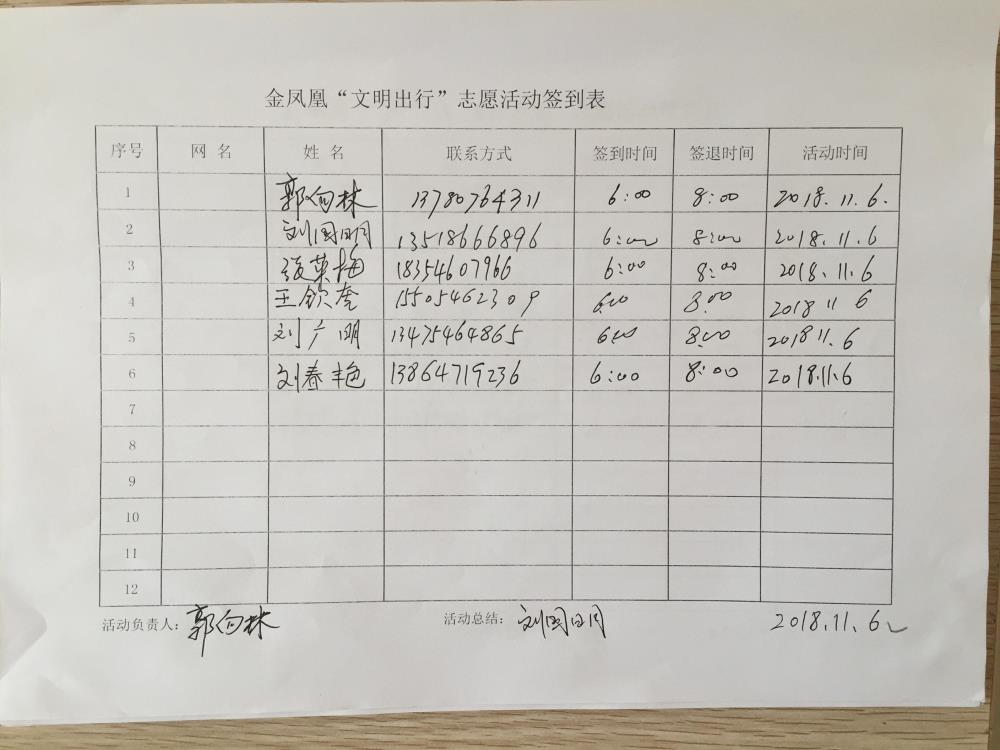 金凤凰“文明出行”志愿活动签到表
序号 网名 姓名 联系方式 签到时间 签退时间 活动时间
1 郭向林 13780764311 6:00 8:00 2018.11.6.
2 刘国明 13518666896 6:00 8:00 2018.11.6
3 张英梅 18354607966 6:00 8:00 2018.11.6
4 王钦奎 15505462309 6:00 8:00 2018 11 6
5 刘广明 13475464865 6:00 8:00 2018 11.6
6 刘春艳 13864719236 6:00 8:00 2018.11.6
7
8
9
10
11
12
活动负责人：郭向林 活动总结：刘国明 2018.11.6